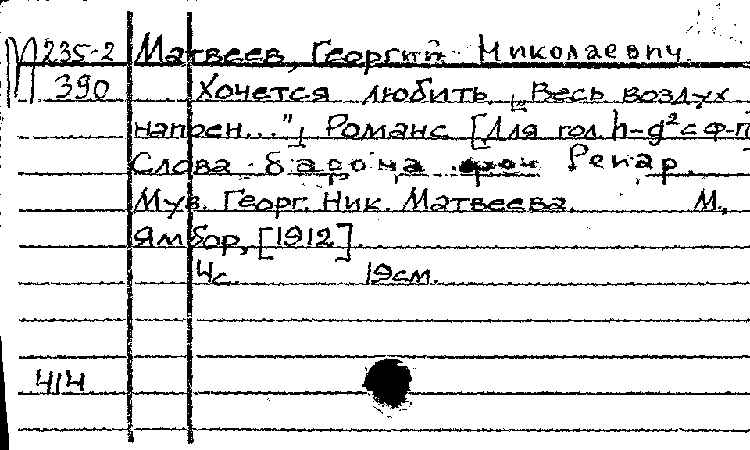 П235-2 Матвеев, Георгий Николаевич.
390 Хочется любить „Весь воздух
напоен..."; Романс [Для гол. h-g² с ф-п
Слова барона фон Ренар.
Муз. Георг. Ник. Матвеева. М.,
Ямбор, [1912].
4с. 19см.
414